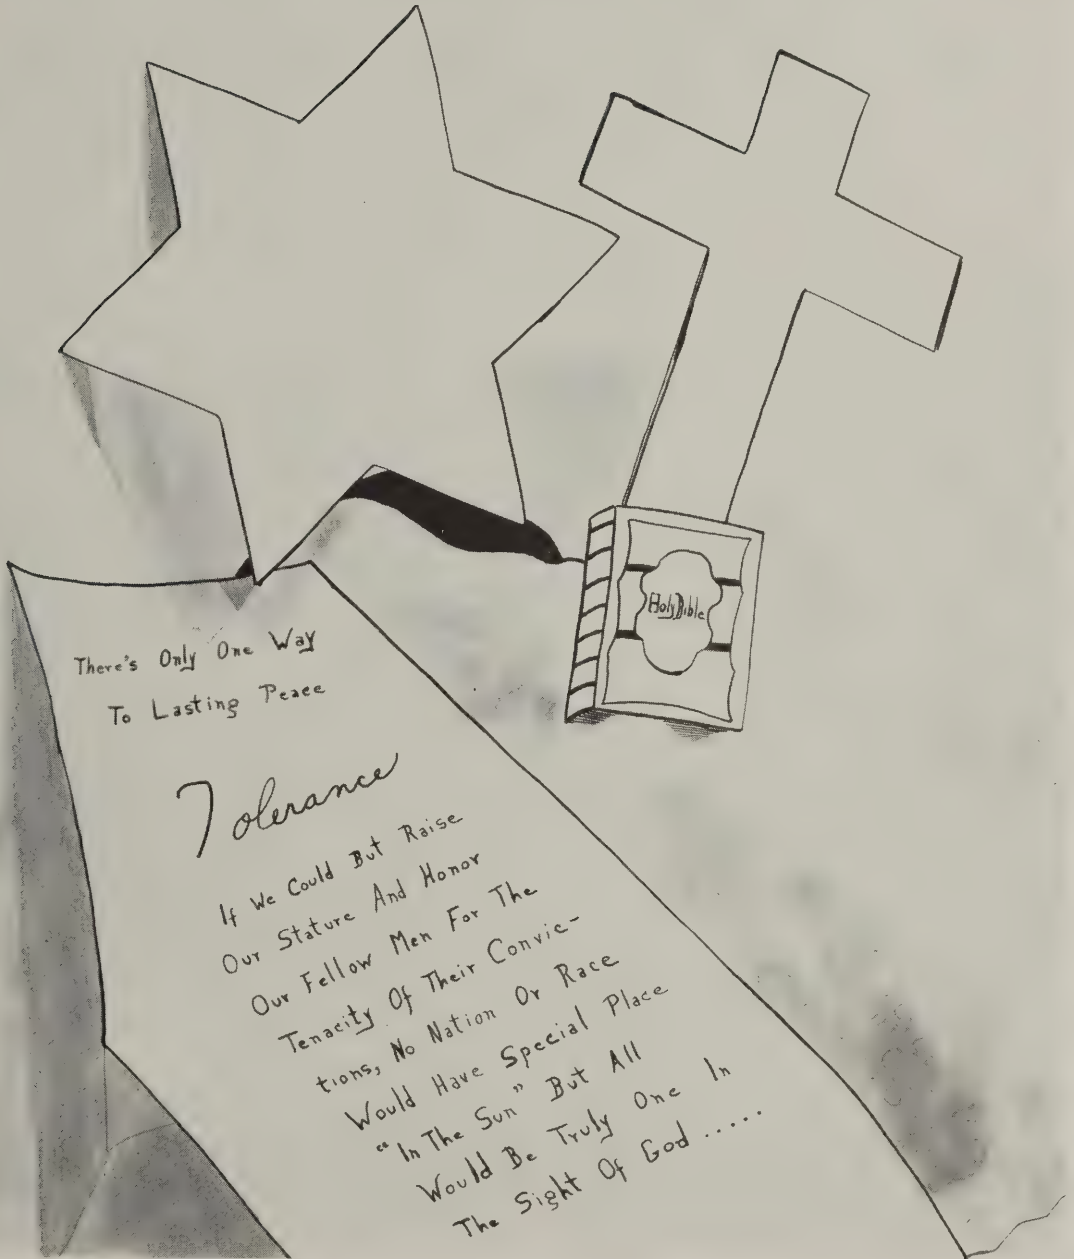 Holy Bible
There's Only One Way
To Lasting Peace
Tolerance
If We Could But Raise
Our Stature And Honor
Our Fellow Men For The
Tenacity Of Their Convic-
tions, No Nation Or Race
Would Have Special Place
"In The Sun" But All
Would Be Truly One In
The Sight Of God.....